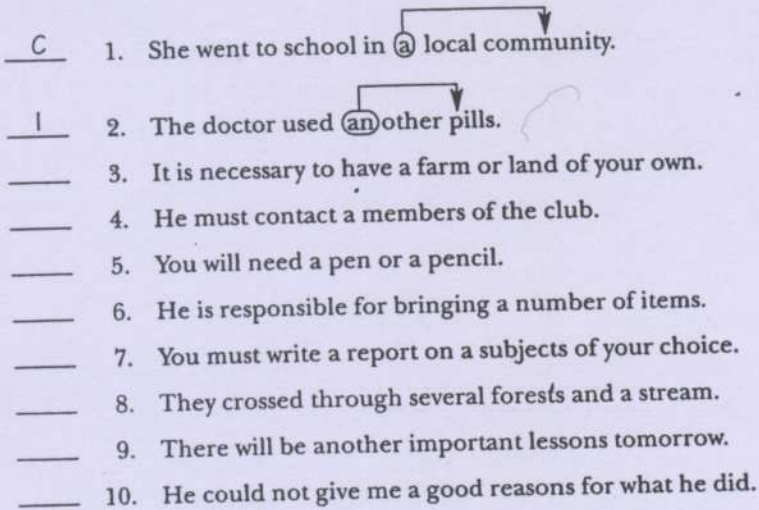 C 1. She went to school in a local community.
I 2. The doctor used another pills.
3. It is necessary to have a farm or land of your own.
4. He must contact a members of the club.
5. You will need a pen or a pencil.
6. He is responsible for bringing a number of items.
7. You must write a report on a subjects of your choice.
8. They crossed through several forests and a stream.
9. There will be another important lessons tomorrow.
10. He could not give me a good reasons for what he did.